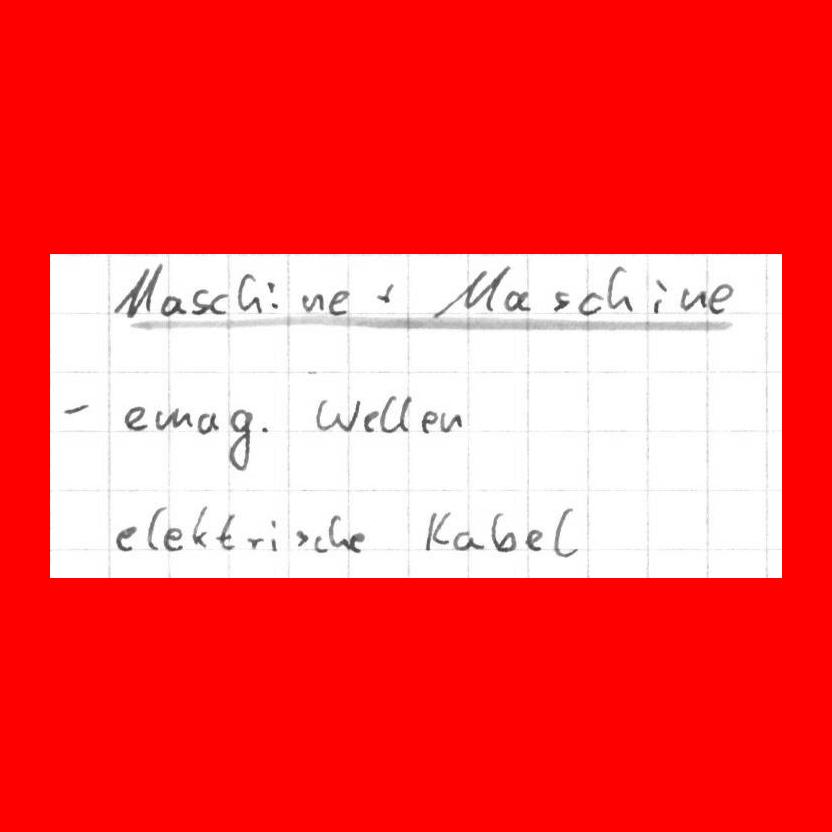 Maschine + Maschine
- emag. Wellen
elektrische Kabel